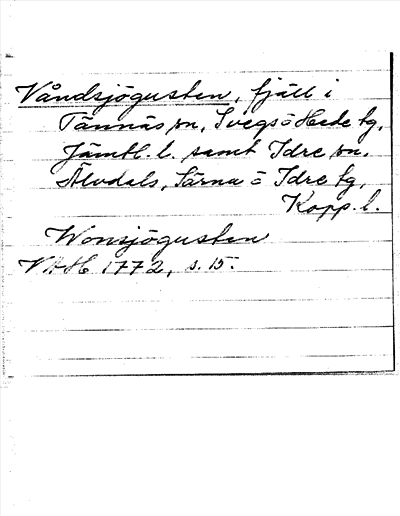 Våndsjögusten, fjäll i
Tännäs sn, Svegs o Hede tg,
Jämtl. l. samt Idre sn,
Älvdals, Särna o Idre tg,
Kopp. l.
Wonsjögusten
VAH 1772, s. 15.